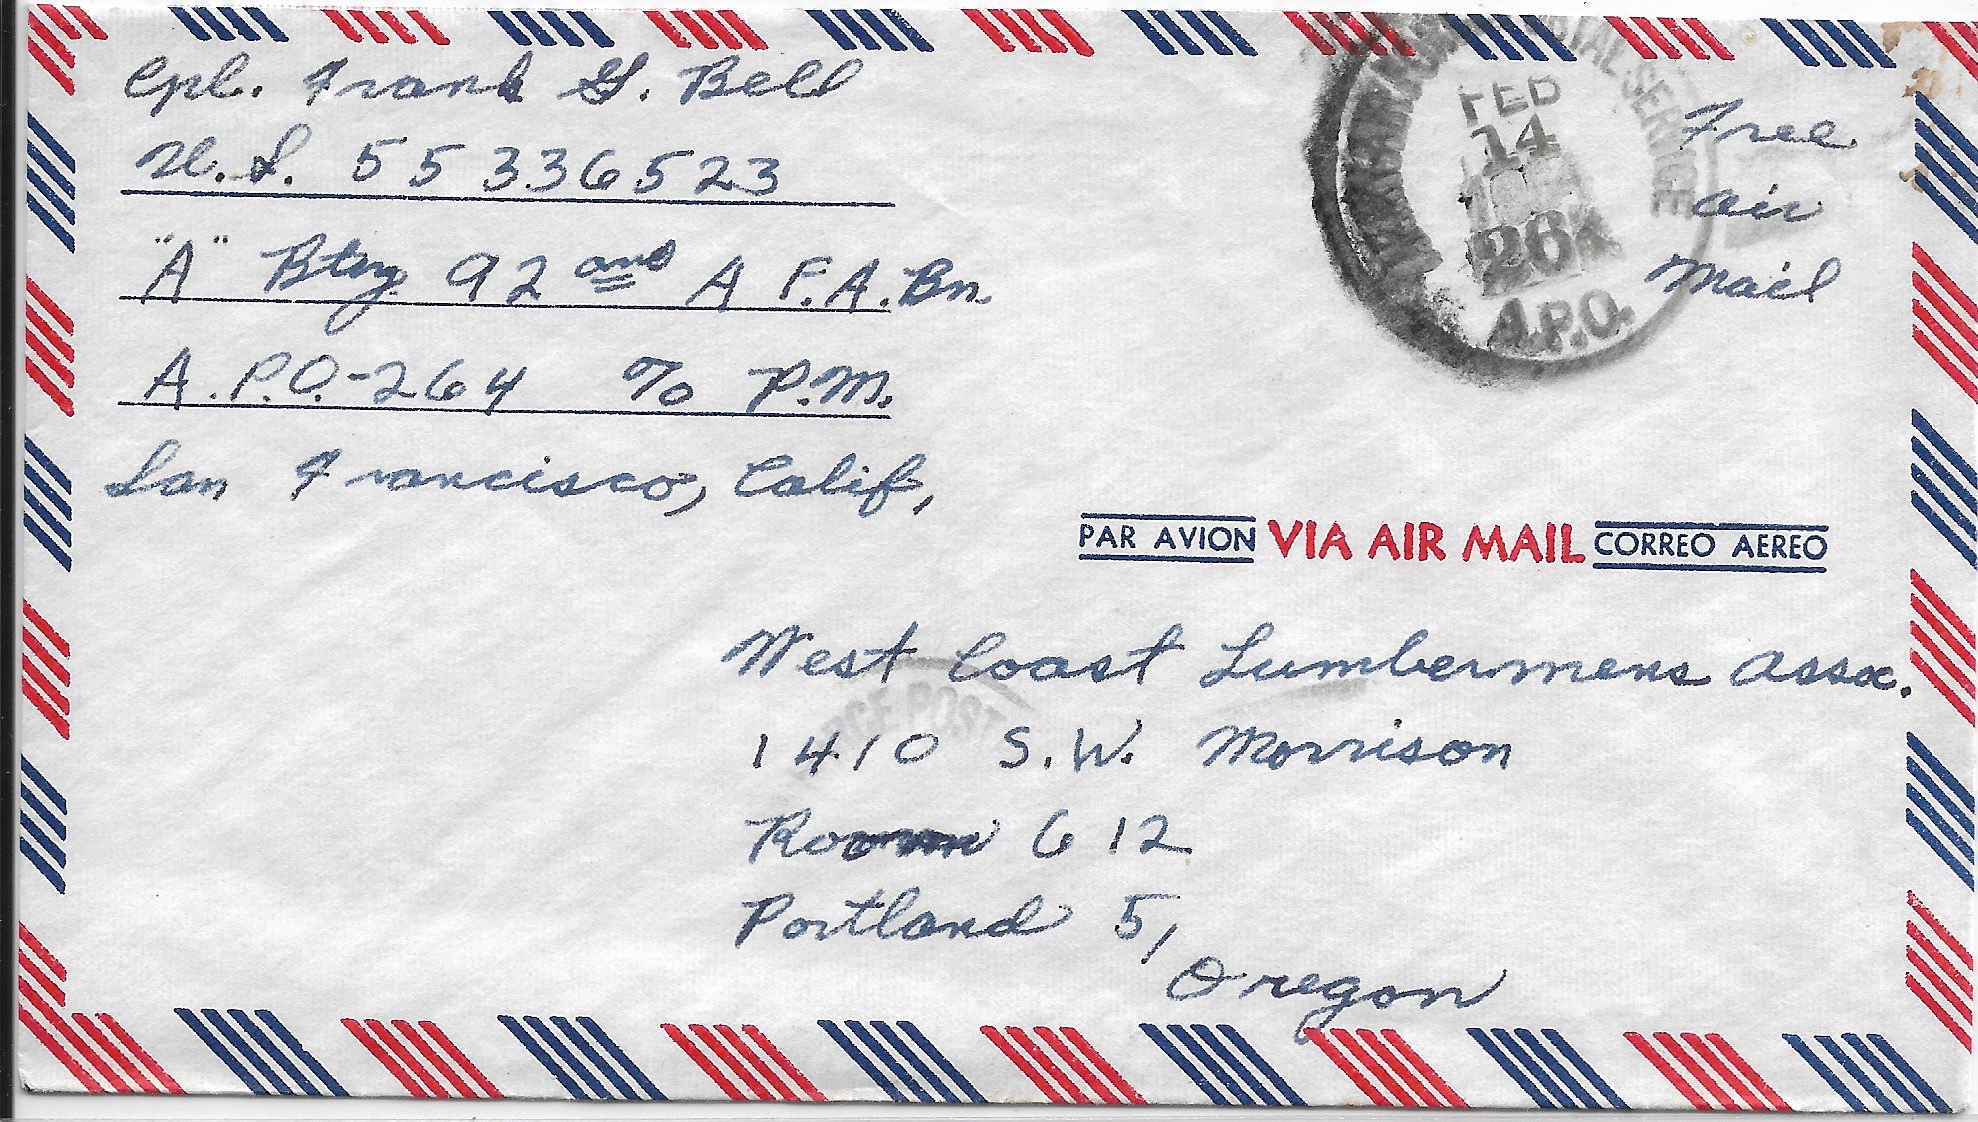 Cpl. Frank G. Bell
U.S. 55336523
"A" Btry 92nd A F.A. Bn.
A.P.O.-264 c/o P.M.
San Francisco, Calif,
POSTAL SERVICE
FEB
14
A.P.O.
Free
air
Mail
PAR AVION VIA AIR MAIL CORREO AEREO
West Coast Lumbermens Assoc.
1410 S.W. Morrison
Room 612
Portland 5,
Oregon
POST